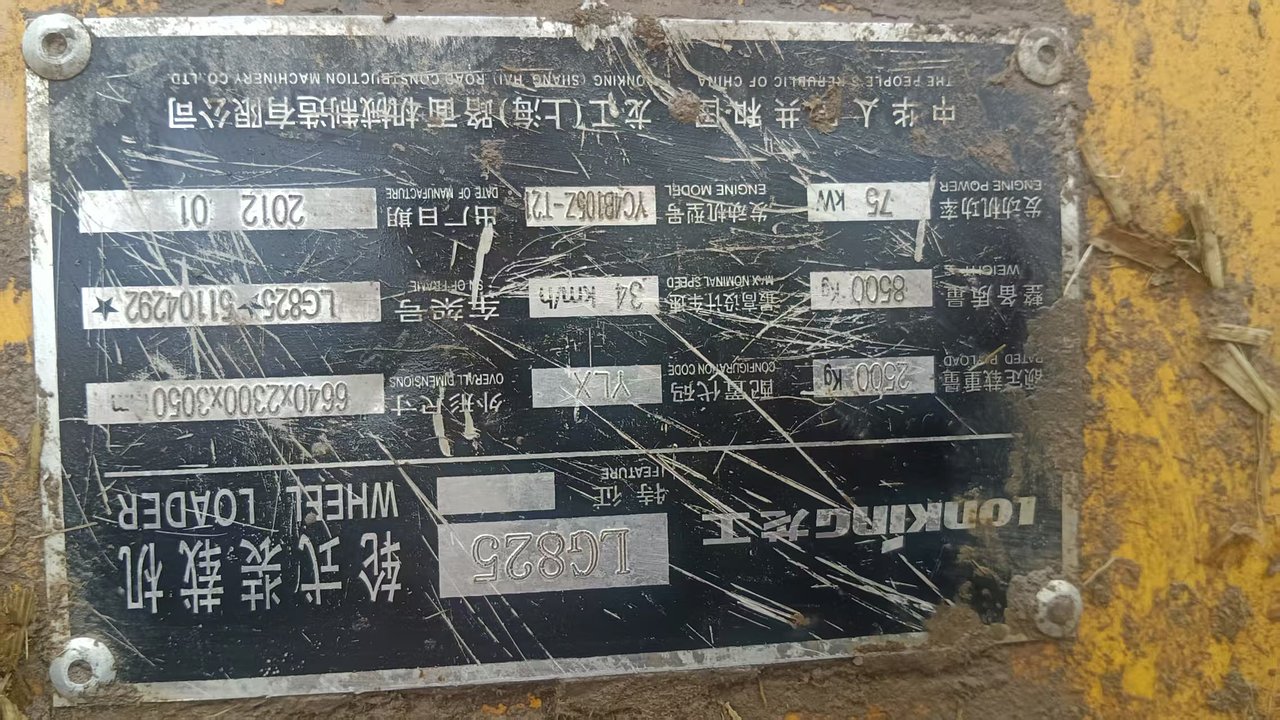 LONKING龙工 LG825 轮式装载机
特征 FEATURE WHEEL LOADER
额定载重量 RATED PAYLOAD 2500 Kg 配置代码 CONFIGURATION CODE YLX 外形尺寸 OVERALL DIMENSIONS 6640x2300x3050
整备质量 WEIGHT 8500 Kg 最高设计车速 MAX NOMINAL SPEED 34 km/h 车架号 S/N OF FRAME LG825★51104292★
发动机功率 ENGINE POWER 75 kW 发动机型号 ENGINE MODEL YC4B105Z-T21 出厂日期 DATE OF MANUFACTURE 2012 01
中华人民共和国 龙工(上海)路面机械制造有限公司
THE PEOPLE'S REPUBLIC OF CHINA LONKING (SHANG HAI) ROAD CONSTRUCTION MACHINERY CO.,LTD